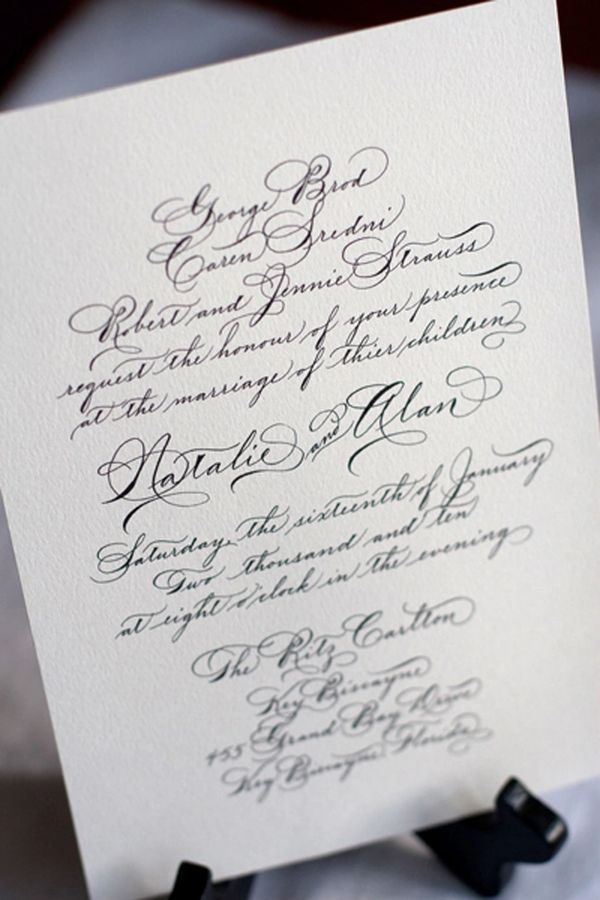 George Brod
Caren Sredni
Robert and Jennie Strauss
request the honour of your presence
at the marriage of thier children
Natalie and Alan
Saturday, the sixteenth of January
Two thousand and ten
at eight o'clock in the evening
The Ritz Carlton
Key Biscayne
455 Grand Bay Drive
Key Biscayne Florida